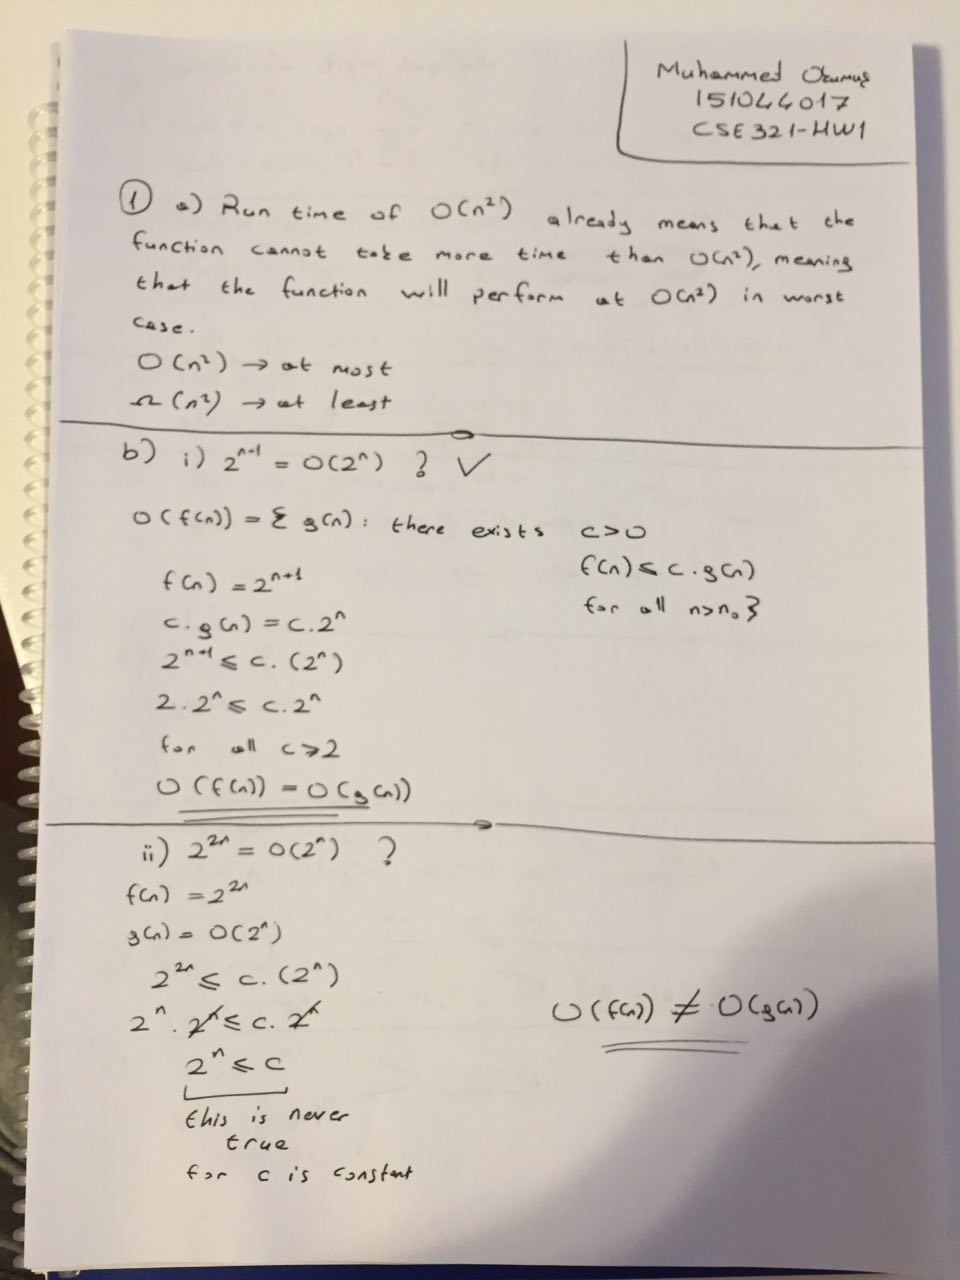 Muhammed Okumuş
151044017
CSE321-HW1
① a) Run time of O(n²) already means that the
function cannot take more time than O(n²), meaning
that the function will perform at O(n²) in worst
case.
O(n²) → at most
Ω(n²) → at least
b) i) 2ⁿ⁺¹ = O(2ⁿ) ? ✓
O(f(n)) = { g(n) : there exists c>0
f(n) ≤ c.g(n)
for all n>n₀}
f(n) = 2ⁿ⁺¹
c.g(n) = c.2ⁿ
2ⁿ⁺¹ ≤ c.(2ⁿ)
2.2ⁿ ≤ c.2ⁿ
for all c≥2
O(f(n)) = O(g(n))
ii) 2²ⁿ = O(2ⁿ) ?
f(n) = 2²ⁿ
g(n) = O(2ⁿ)
2²ⁿ ≤ c.(2ⁿ)
2ⁿ.2ⁿ ≤ c.2ⁿ
2ⁿ ≤ c
this is never
true
for c is constant
O(f(n)) ≠ O(g(n))